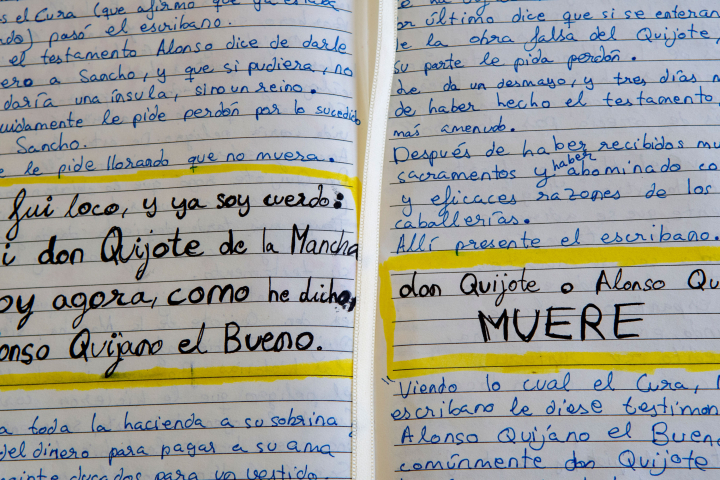 es el Cura (que afirmó que ya estaba
pasó el escribano.
el testamento Alonso dice de darle
ero a Sancho, y que si pudiera, no
daría una ínsula, sino un reino.
uidamente le pide perdón por lo sucedido
Sancho.
e le pide llorando que no muera.
fui loco, y ya soy cuerdo:
i don Quijote de la Mancha
oy agora, como he dicho,
onso Quijano el Bueno.
a toda la hacienda a su sobrina
del dinero para pagar a su ama
veinte ducados para un vestido.
or último dice que si se enteran
e la obra falsa del Quijote,
su parte le pida perdón.
le da un desmayo, y tres días
de haber hecho el testamento
más amenudo.
Después de haber recibidos mu
sacramentos y haber abominado co
y eficaces razones de los
caballerías.
Allí presente el escribano.
don Quijote o Alonso Qu
MUERE
"Viendo lo cual el Cura,
escribano le diese testimon
Alonso Quijano el Buen
comúnmente don Quijote